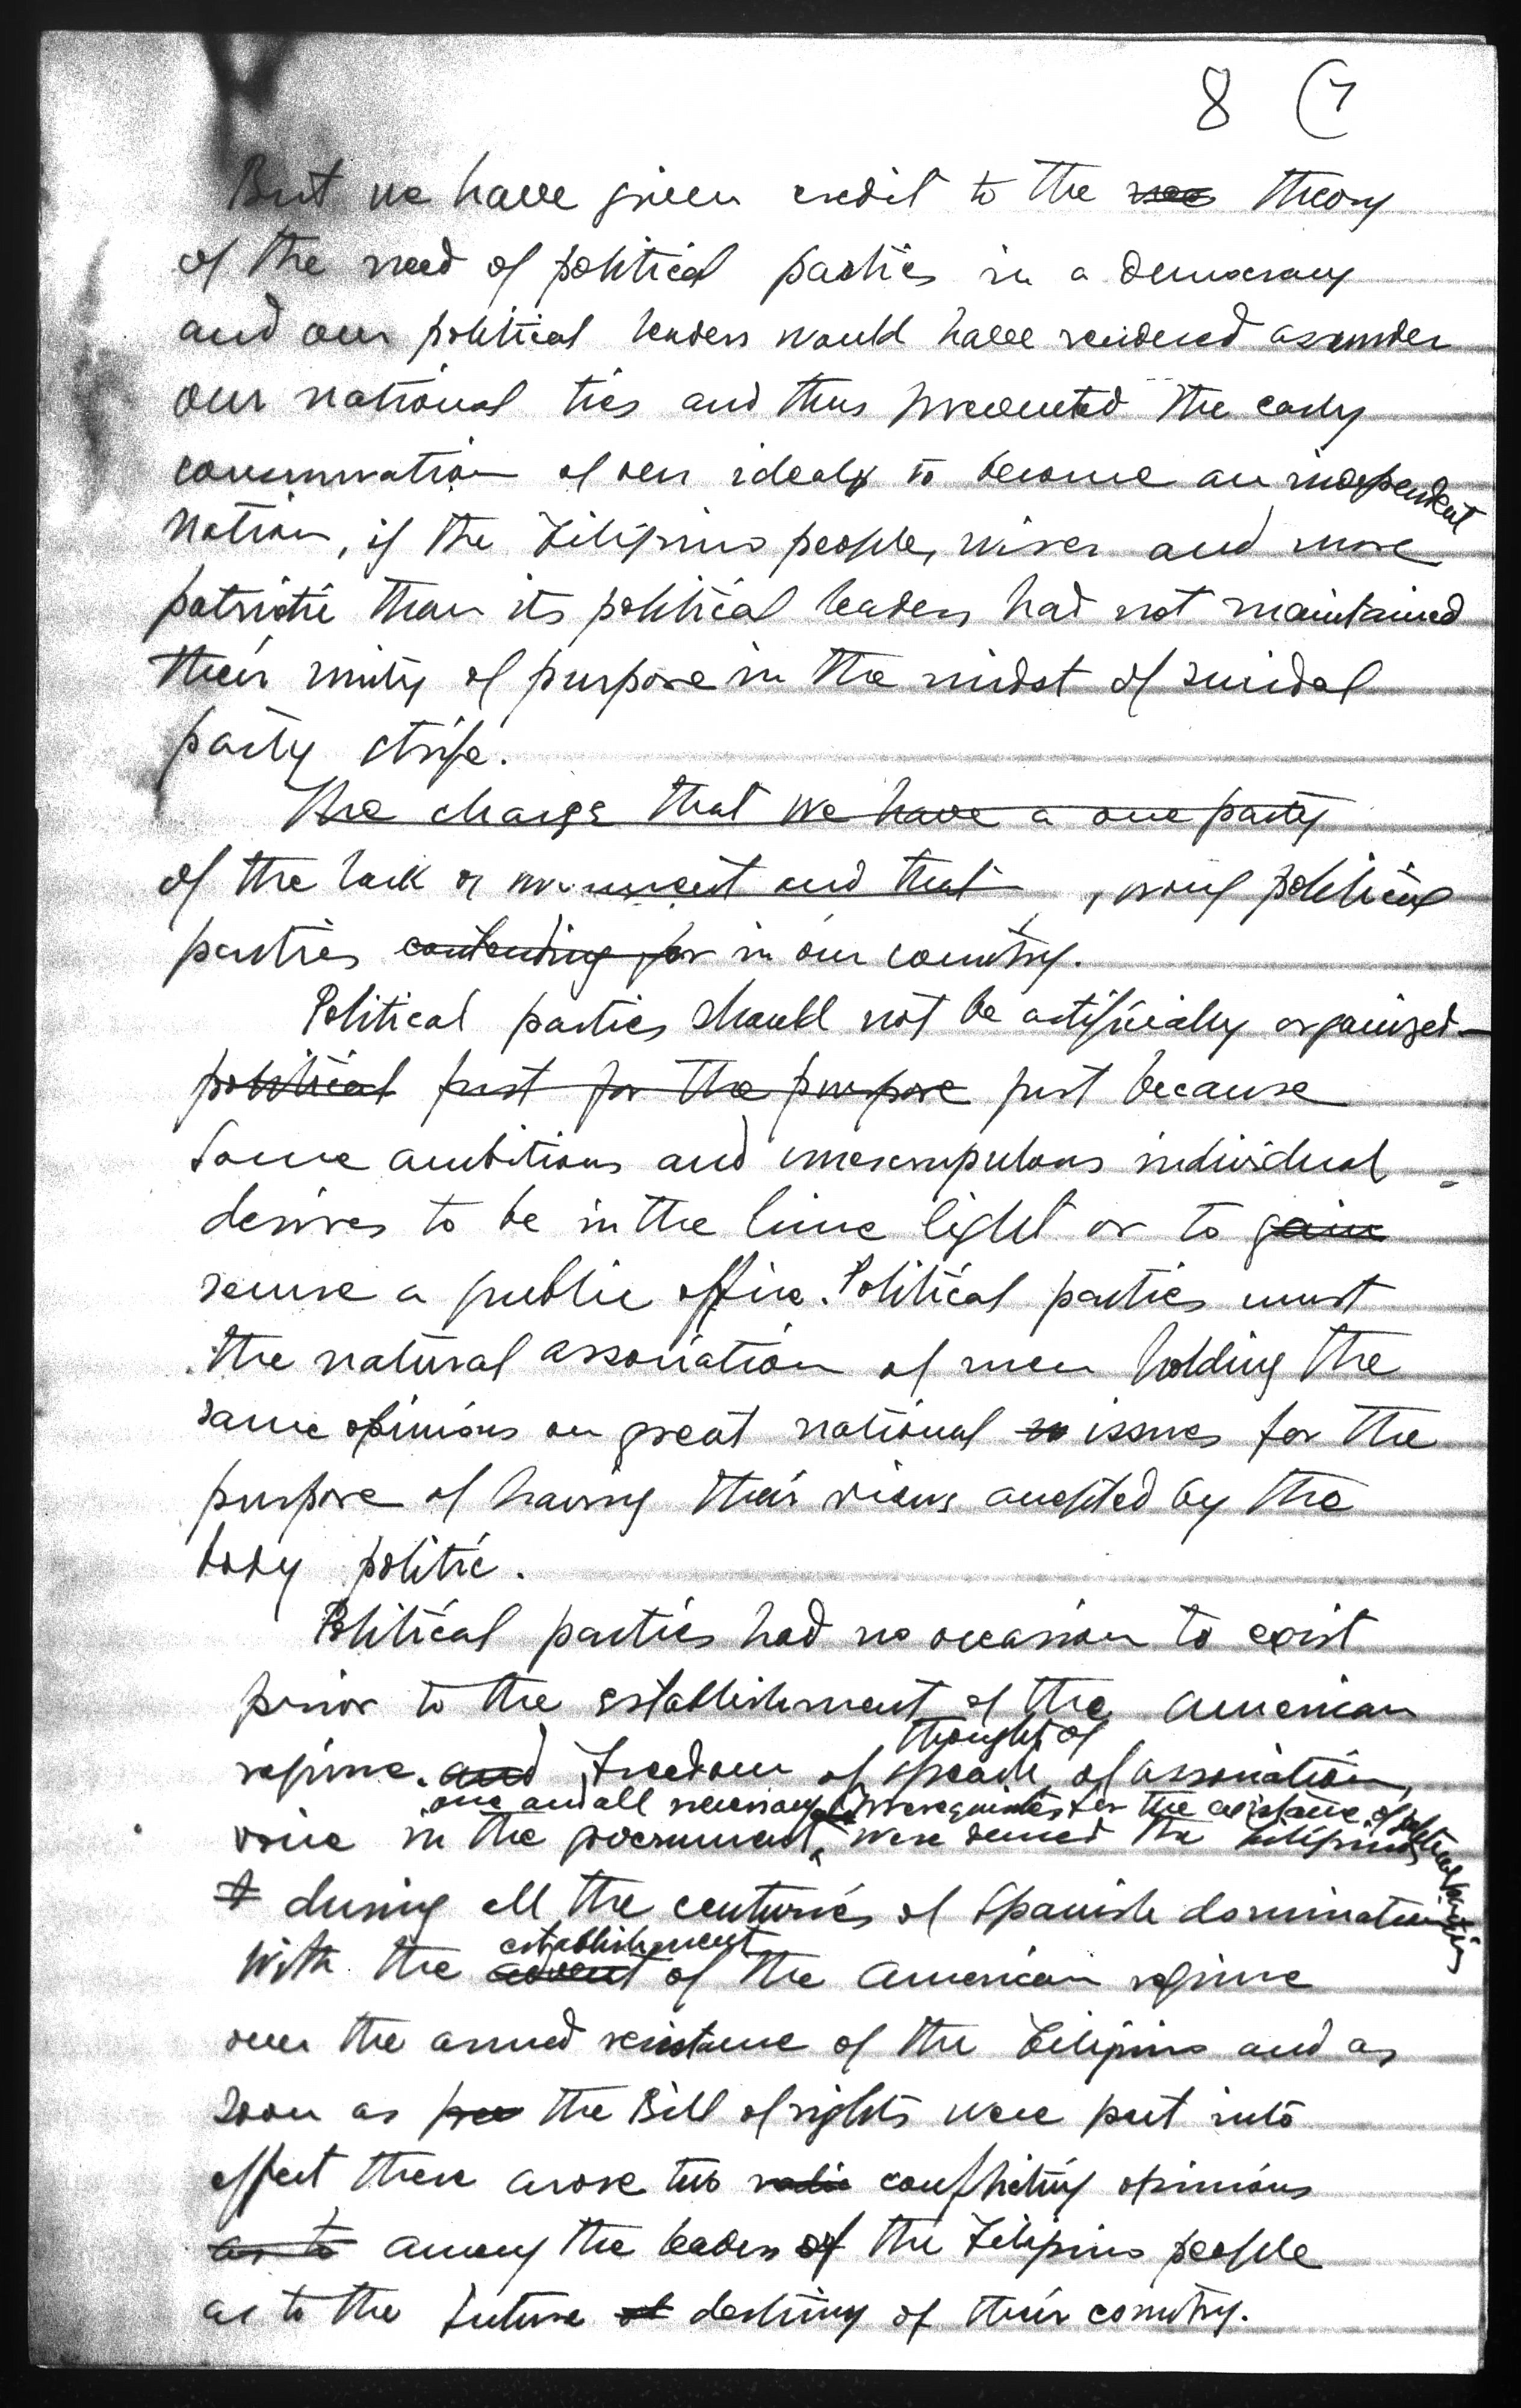 8 (7
But we have given credit to the theory
of the need of political parties in a democracy
and our political leaders would have rendered assunder
our national ties and thus prevented the early
consummation of our ideals to become an independent
Nation, if the Filipino people, wiser and more
patriotic than its political leaders had not maintained
their unity of purpose in the midst of suicidal
party strife.
The charge that we have a one party
of the lack of and that political
parties contending for in our country.
Political parties should not be artificially organized
political just for the purpose just because
some ambitious and unscrupulous individual
desires to be in the lime light or to gain
secure a public office. Political parties must
the natural association of men holding the
same opinions on great national issues for the
purpose of having their views accepted by the
body politic.
Political parties had no occasion to exist
prior to the establishment of the American
thought, of
regime. and Freedom of speach, of association,
one and all necessary prerequisites for the existence of political parties
voice in the government, were denied the Filipinos
during all the centuries of Spanish domination
establishment
With the advent of the American regime
over the armed resistance of the Filipinos and as
soon as the Bill of rights were put into
effect there arose two conflicting opinions
as to among the leaders of the Filipino people
as to the future destiny of their country.